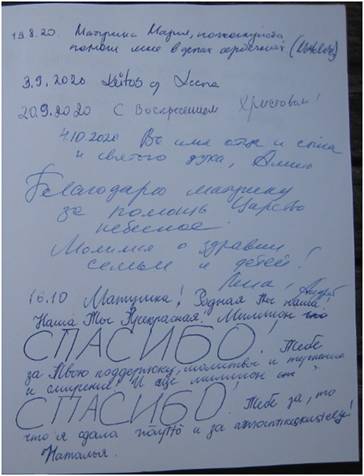 19.8.20. Матушка Мария, пожалуйста
помоги мне в делах сердечных
3.9.2020
20.9.2020 С Воскресением Христовым!
4.10.2020 Во имя отца и сына
и святого духа, Аминь
Благодарю матушку
за помощь Царство
небесное!
Молимся о здравии
семьи и детей!
Лена, Андрей
16.10 Матушка! Родная Ты наша!
Наша Ты Прекрасная. Миллион
СПАСИБО! Тебе
за Твою поддержку, молитвы и терпение
и смирение. И еще миллион
СПАСИБО! Тебе за, то
что я сдала и за
Наталья.